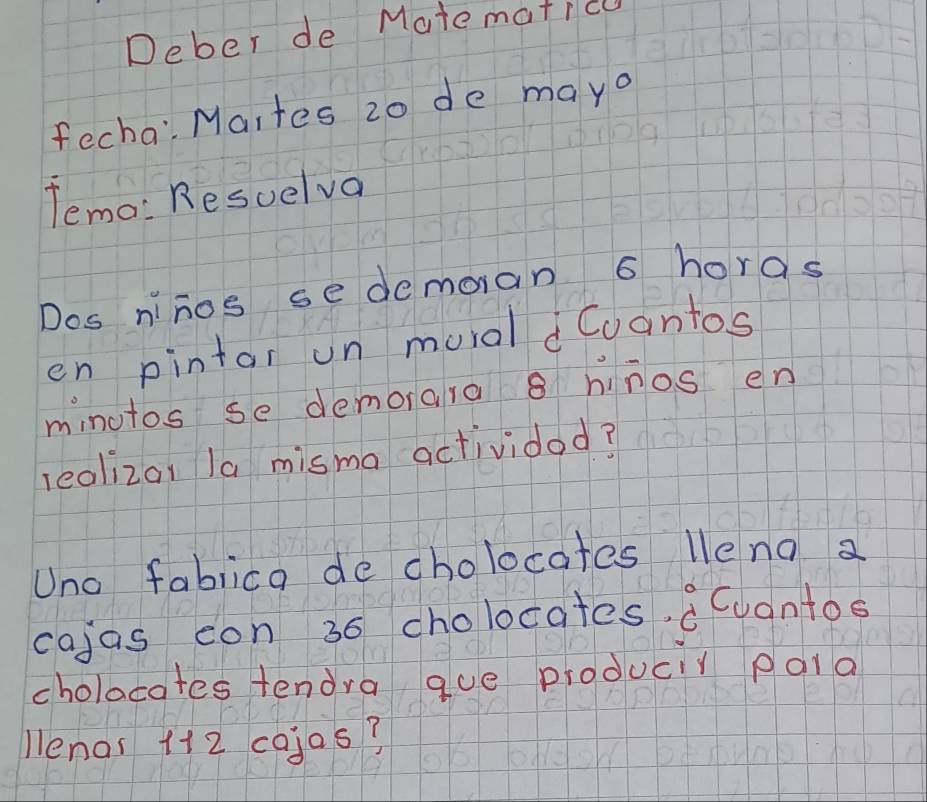 Deber de Matematica
fecha: Martes 20 de mayo
Tema: Resuelva
Dos niños se demoran 6 horas
en pintar un mural ¿Cuantos
minutos se demorara 8 niños en
realizar la misma actividad?
Una fabrica de cholocates llena 2
cajas con 36 cholocates. ¿Cuantos
cholocates tendra que producir para
llenar 112 cajas?